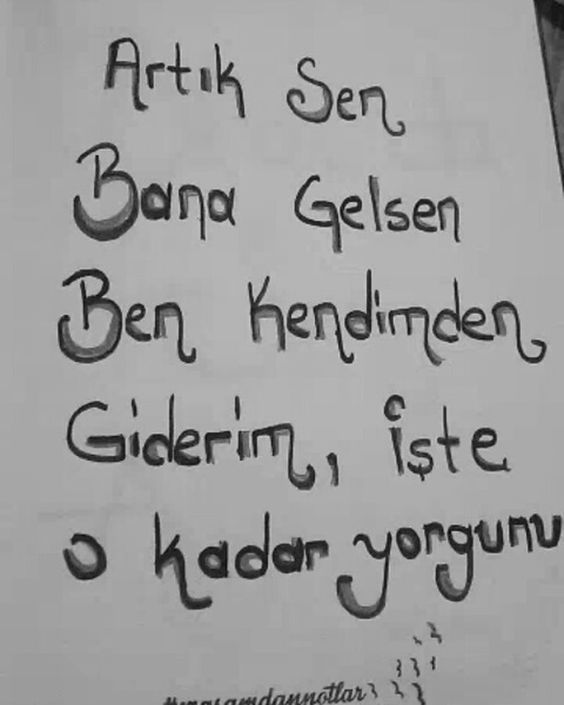 Artık Sen
Bana Gelsen
Ben Kendimden
Giderim, işte
o kadar yorgunu